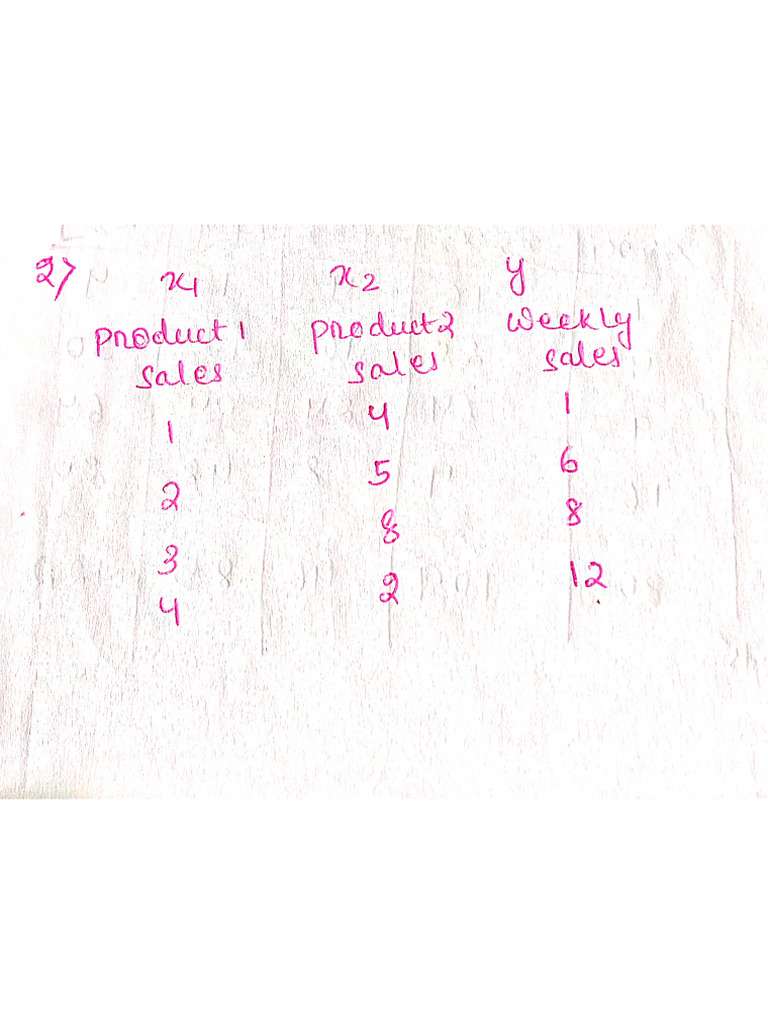 2) x1 x2 y
product 1 product 2 weekly
sales sales sales
1 4 1
2 5 6
3 8 8
4 2 12